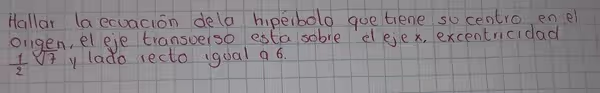 Hallar la ecuación dela hipérbolo que tiene su centro en el
origen, el eje transverso esta sobre el eje x, excentricidad
1/2 √7 y lado recto igual a 6.